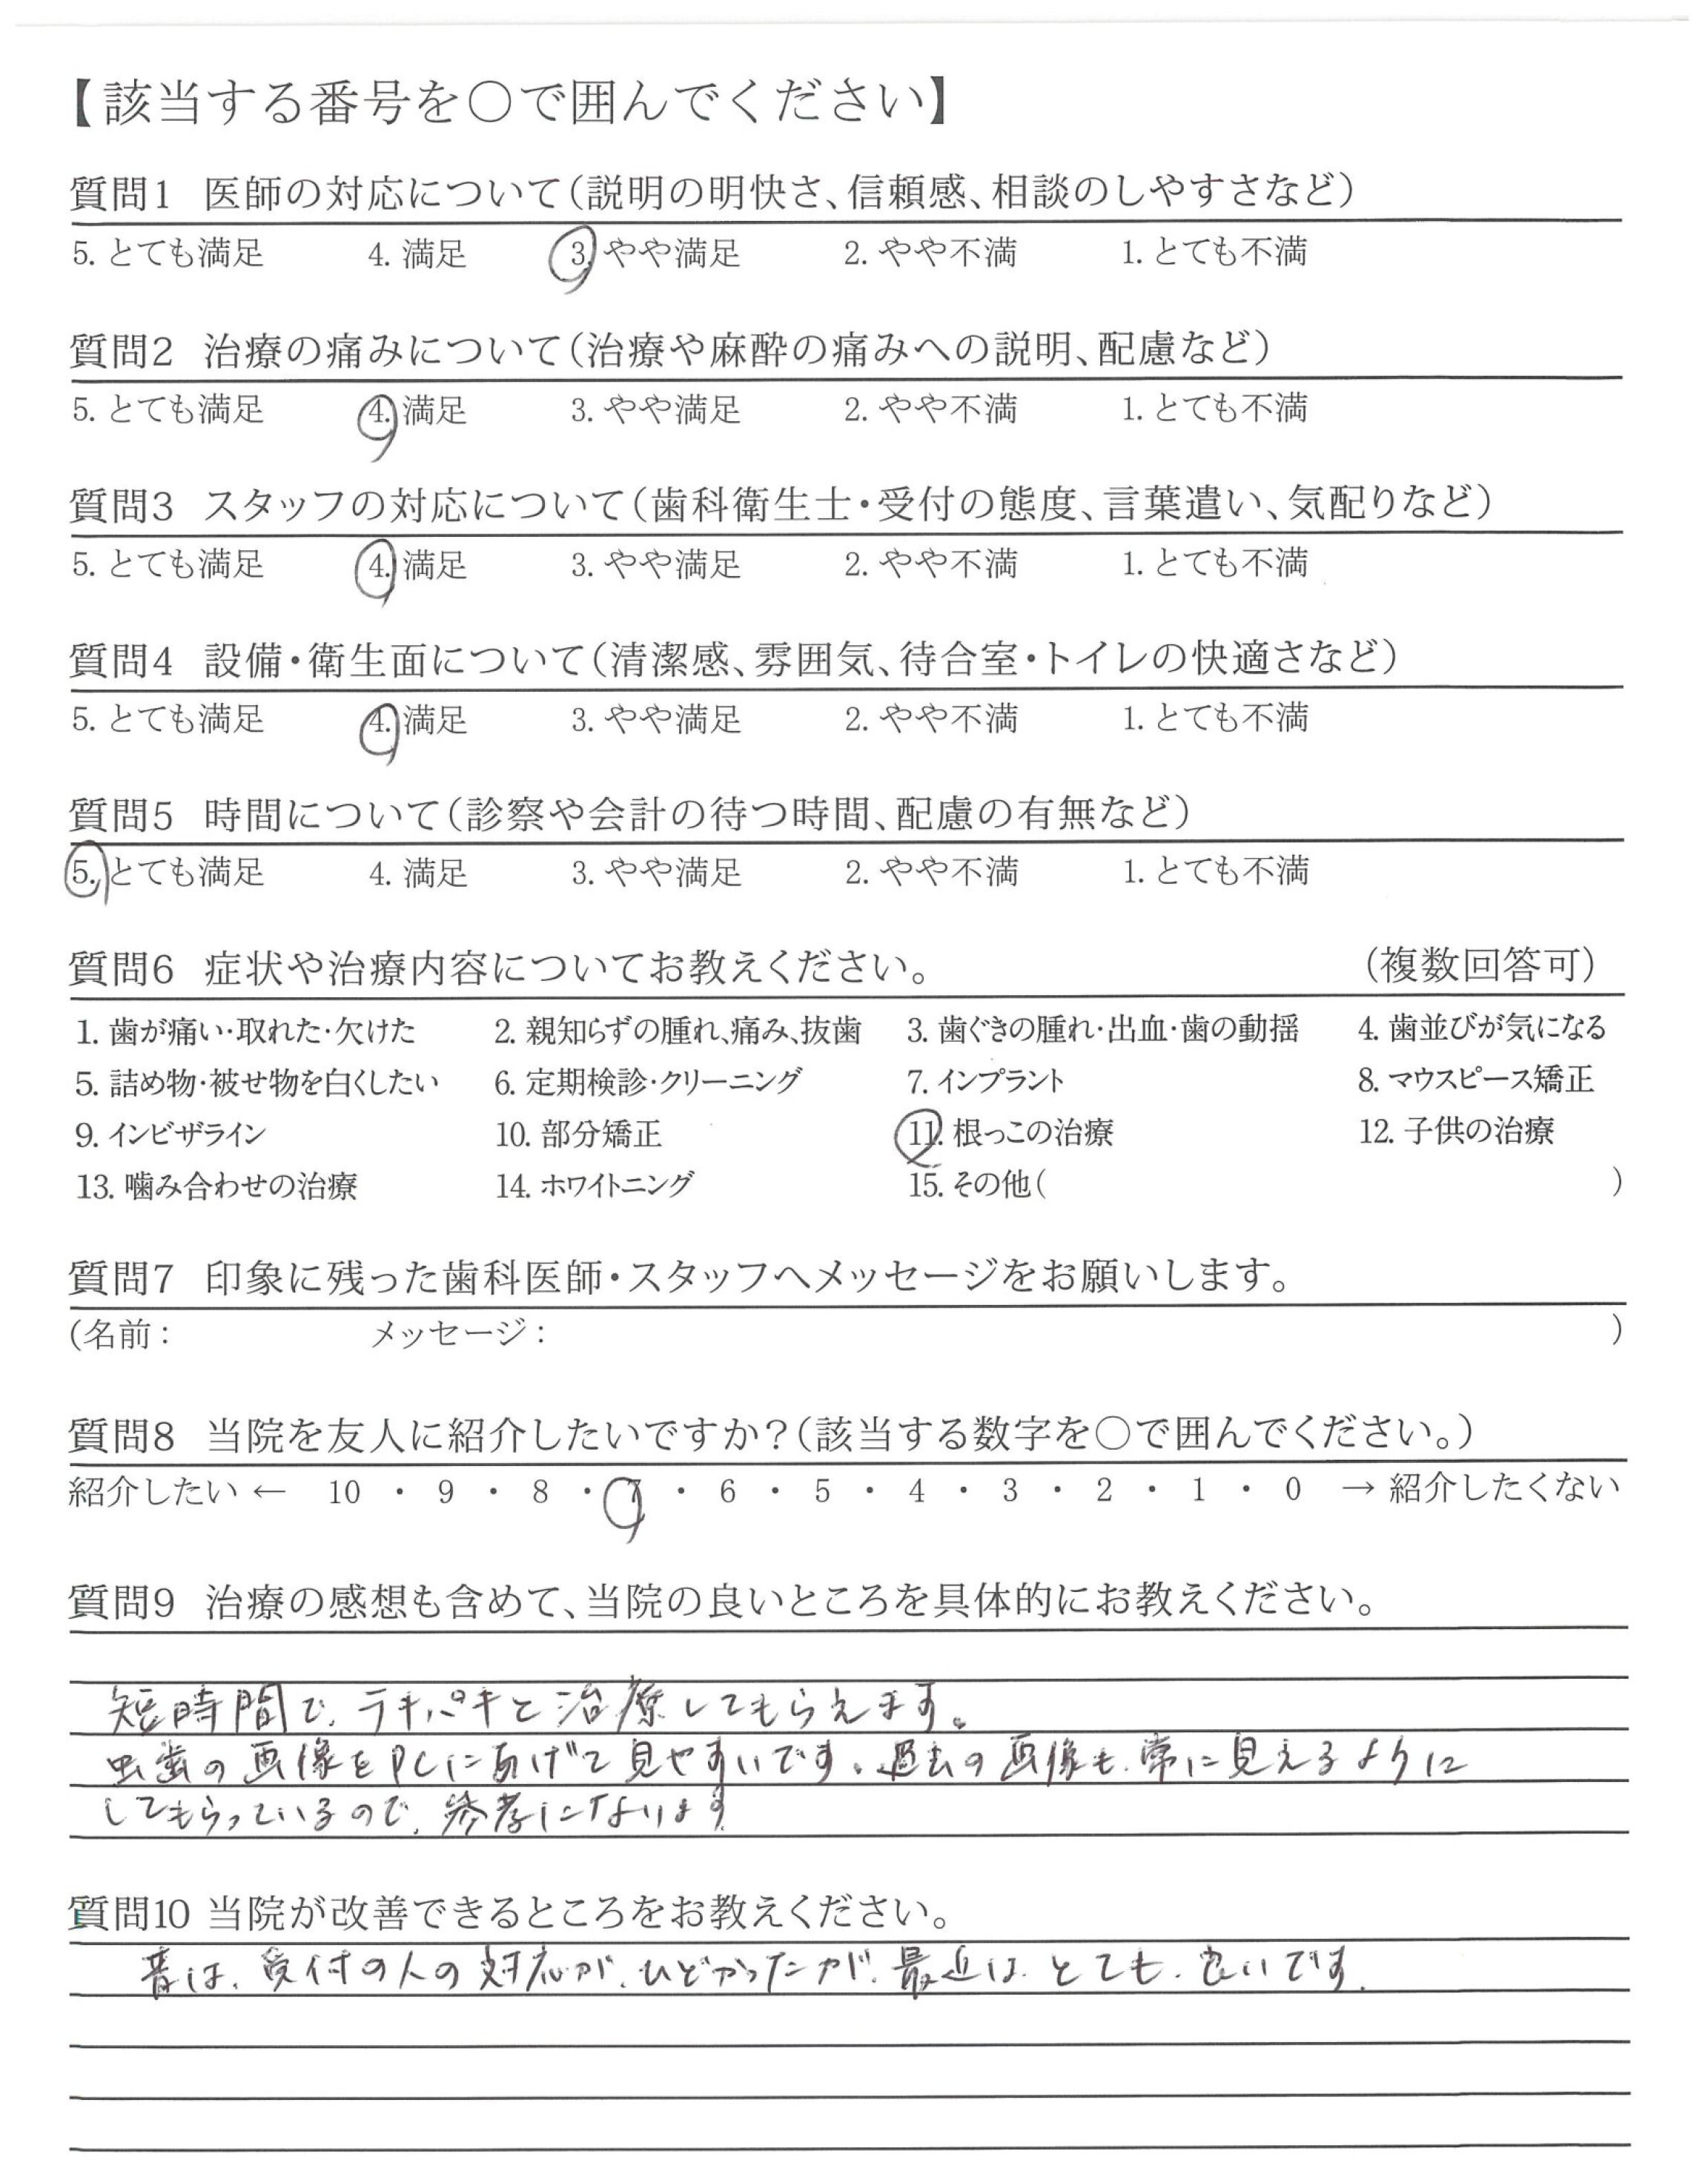 【該当する番号を○で囲んでください】
質問1 医師の対応について(説明の明快さ、信頼感、相談のしやすさなど)
5. とても満足 4. 満足 3. やや満足 2. やや不満 1. とても不満
質問2 治療の痛みについて(治療や麻酔の痛みへの説明、配慮など)
5. とても満足 4. 満足 3. やや満足 2. やや不満 1. とても不満
質問3 スタッフの対応について(歯科衛生士・受付の態度、言葉遣い、気配りなど)
5. とても満足 4. 満足 3. やや満足 2. やや不満 1. とても不満
質問4 設備・衛生面について(清潔感、雰囲気、待合室・トイレの快適さなど)
5. とても満足 4. 満足 3. やや満足 2. やや不満 1. とても不満
質問5 時間について(診察や会計の待つ時間、配慮の有無など)
5. とても満足 4. 満足 3. やや満足 2. やや不満 1. とても不満
質問6 症状や治療内容についてお教えください。 (複数回答可)
1. 歯が痛い・取れた・欠けた 2. 親知らずの腫れ、痛み、抜歯 3. 歯ぐきの腫れ・出血・歯の動揺 4. 歯並びが気になる
5. 詰め物・被せ物を白くしたい 6. 定期検診・クリーニング 7. インプラント 8. マウスピース矯正
9. インビザライン 10. 部分矯正 11. 根っこの治療 12. 子供の治療
13. 噛み合わせの治療 14. ホワイトニング 15. その他( )
質問7 印象に残った歯科医師・スタッフへメッセージをお願いします。
(名前: メッセージ: )
質問8 当院を友人に紹介したいですか?(該当する数字を○で囲んでください。)
紹介したい ← 10 ・ 9 ・ 8 ・ 7 ・ 6 ・ 5 ・ 4 ・ 3 ・ 2 ・ 1 ・ 0 → 紹介したくない
質問9 治療の感想も含めて、当院の良いところを具体的にお教えください。
短時間で、テキパキと治療してもらえます。
虫歯の画像をPCにあげて見やすいです。過去の画像も、常に見えるように
してもらっているので、参考になります
質問10 当院が改善できるところをお教えください。
昔は、受付の人の対応が、ひどかったが、最近は、とても、良いです.